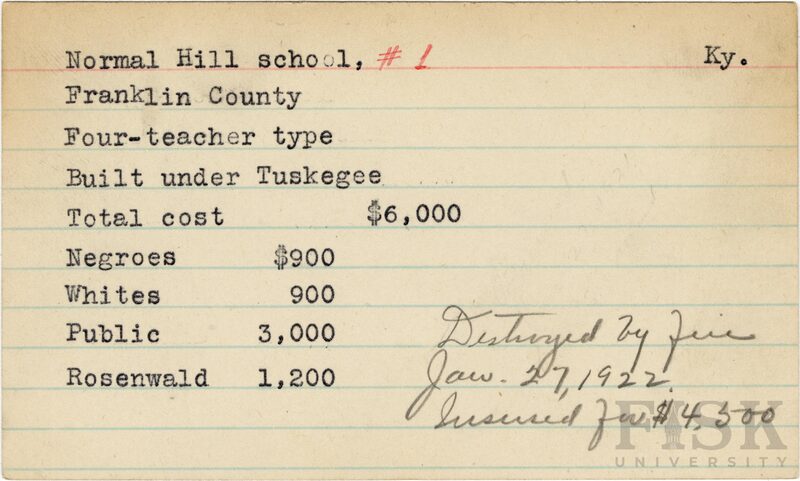 Normal Hill school, # 1 Ky.
Franklin County
Four-teacher type
Built under Tuskegee
Total cost $6,000
Negroes $900
Whites 900
Public 3,000
Rosenwald 1,200
Destroyed by fire
Jan. 27, 1922.
Insured for $4,500
FISK
UNIVERSITY